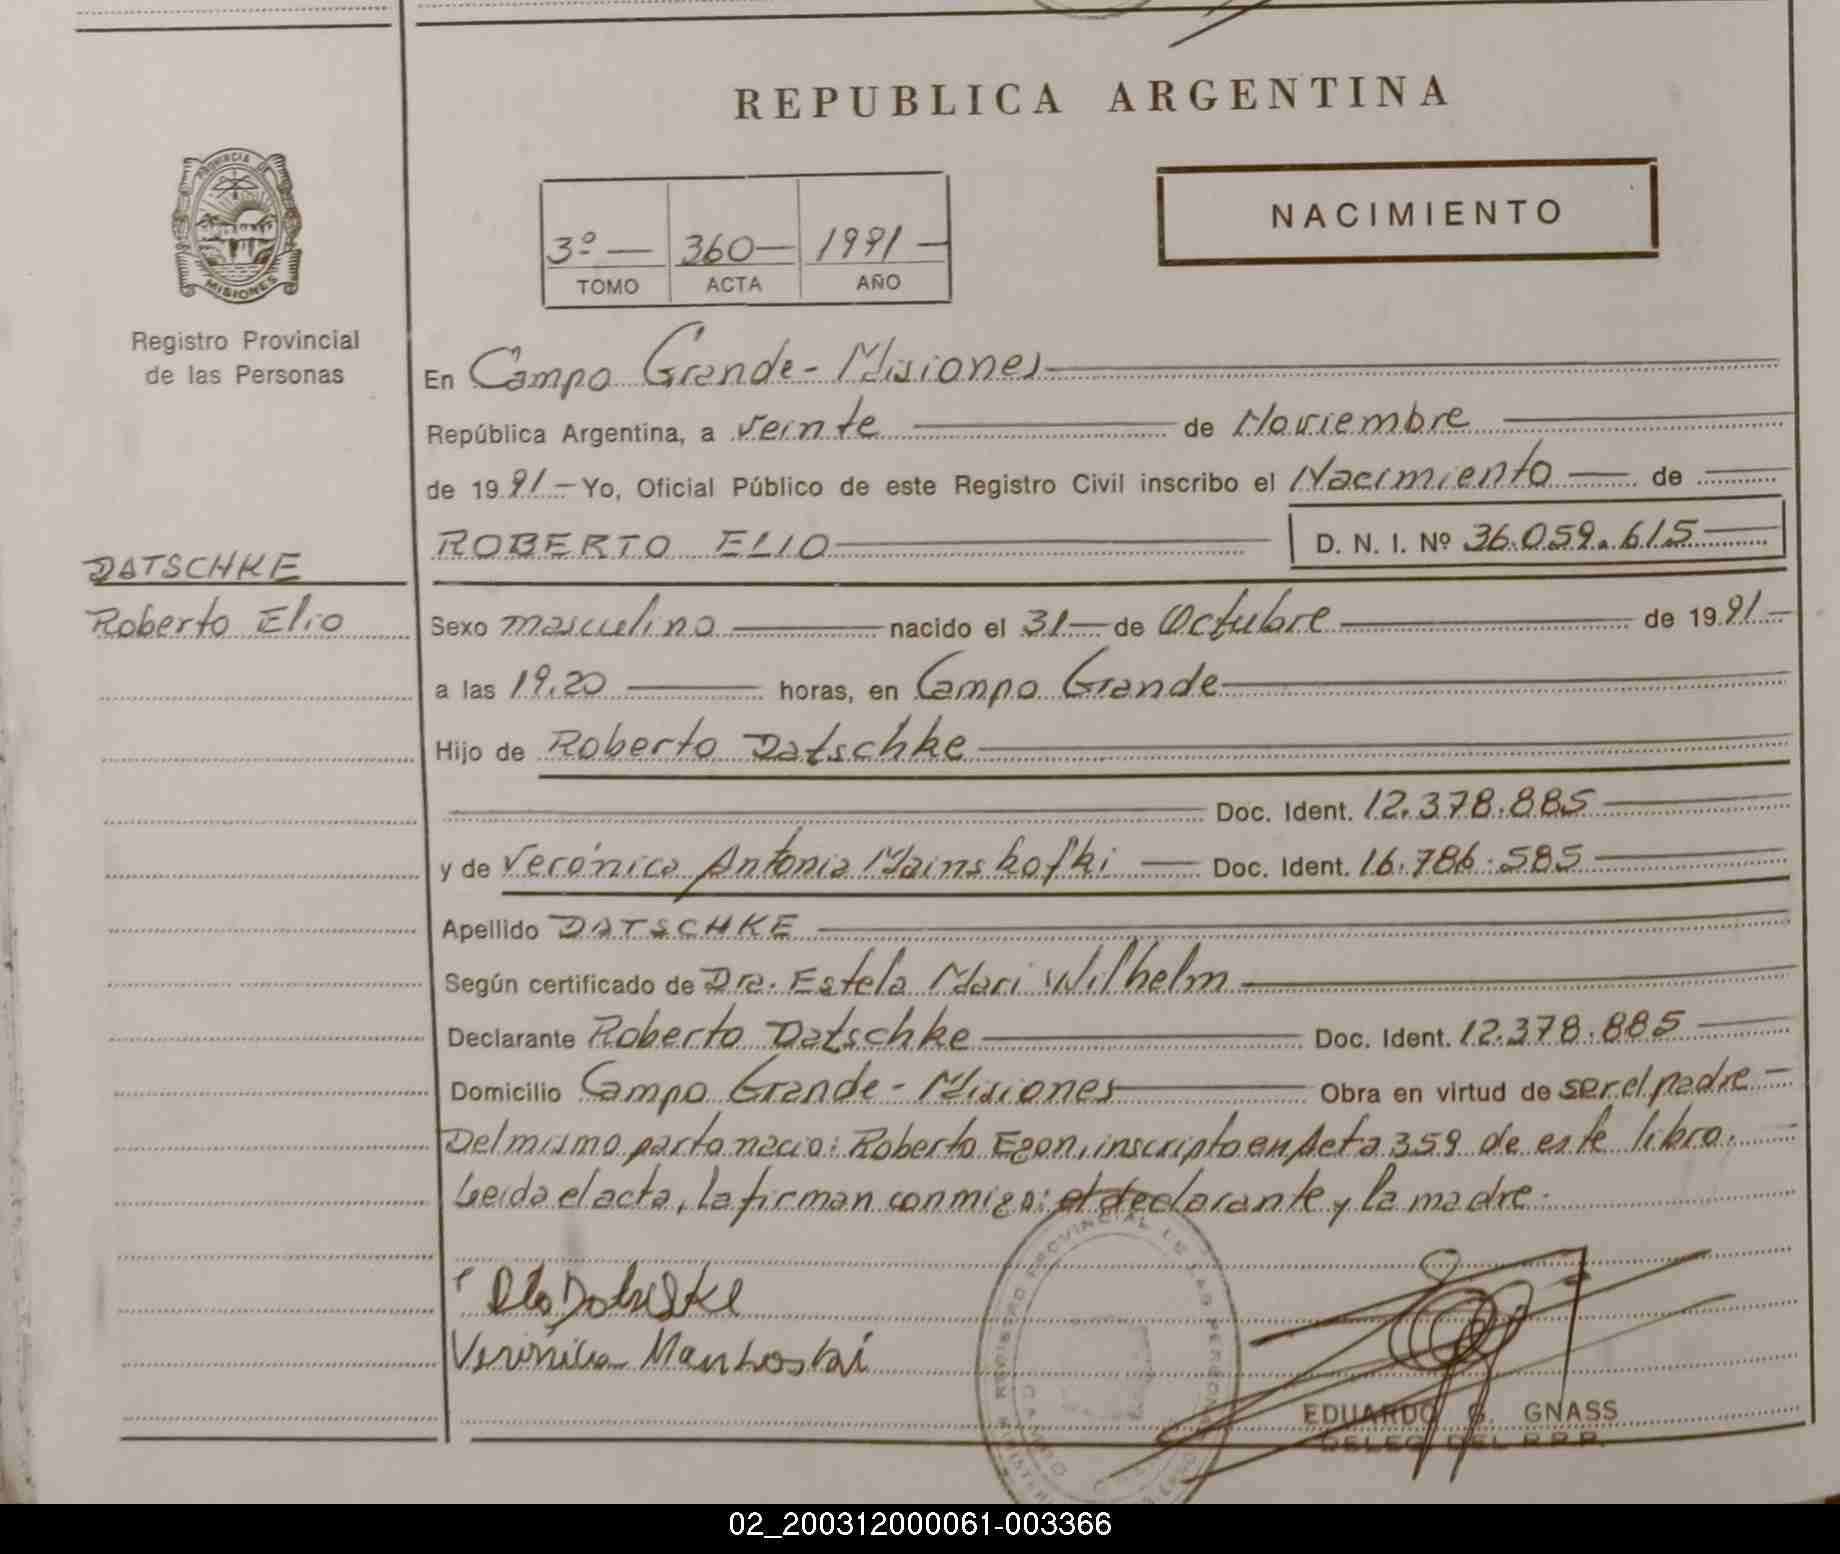 REPUBLICA ARGENTINA
PROVINCIA DE
MISIONES
Registro Provincial
de las Personas
3º — 360 — 1991 —
TOMO ACTA AÑO
NACIMIENTO
En Campo Grande - Misiones
República Argentina, a veinte de Noviembre
de 1991 - Yo, Oficial Público de este Registro Civil inscribo el Nacimiento de
ROBERTO ELIO D. N. I. Nº 36.059.615
DATSCHKE
Roberto Elio
Sexo masculino nacido el 31 de Octubre de 1991
a las 19,20 horas, en Campo Grande
Hijo de Roberto Datschke
Doc. Ident. 12.378.885
y de Verónica Antonia Mainskofki Doc. Ident. 16.786.585
Apellido DATSCHKE
Según certificado de Dra. Estela Mari Wilhelm
Declarante Roberto Datschke Doc. Ident. 12.378.885
Domicilio Campo Grande - Misiones Obra en virtud de ser el padre
Del mismo parto nacio: Roberto Egon, inscripto en Acta 359 de este libro.
Leida el acta, la firman conmigo: el declarante y la madre.
Verónica
EDUARDO G. GNASS
DELEG. DEL R.P.P.
REGISTRO PROVINCIAL DE LAS PERSONAS
02_200312000061-003366